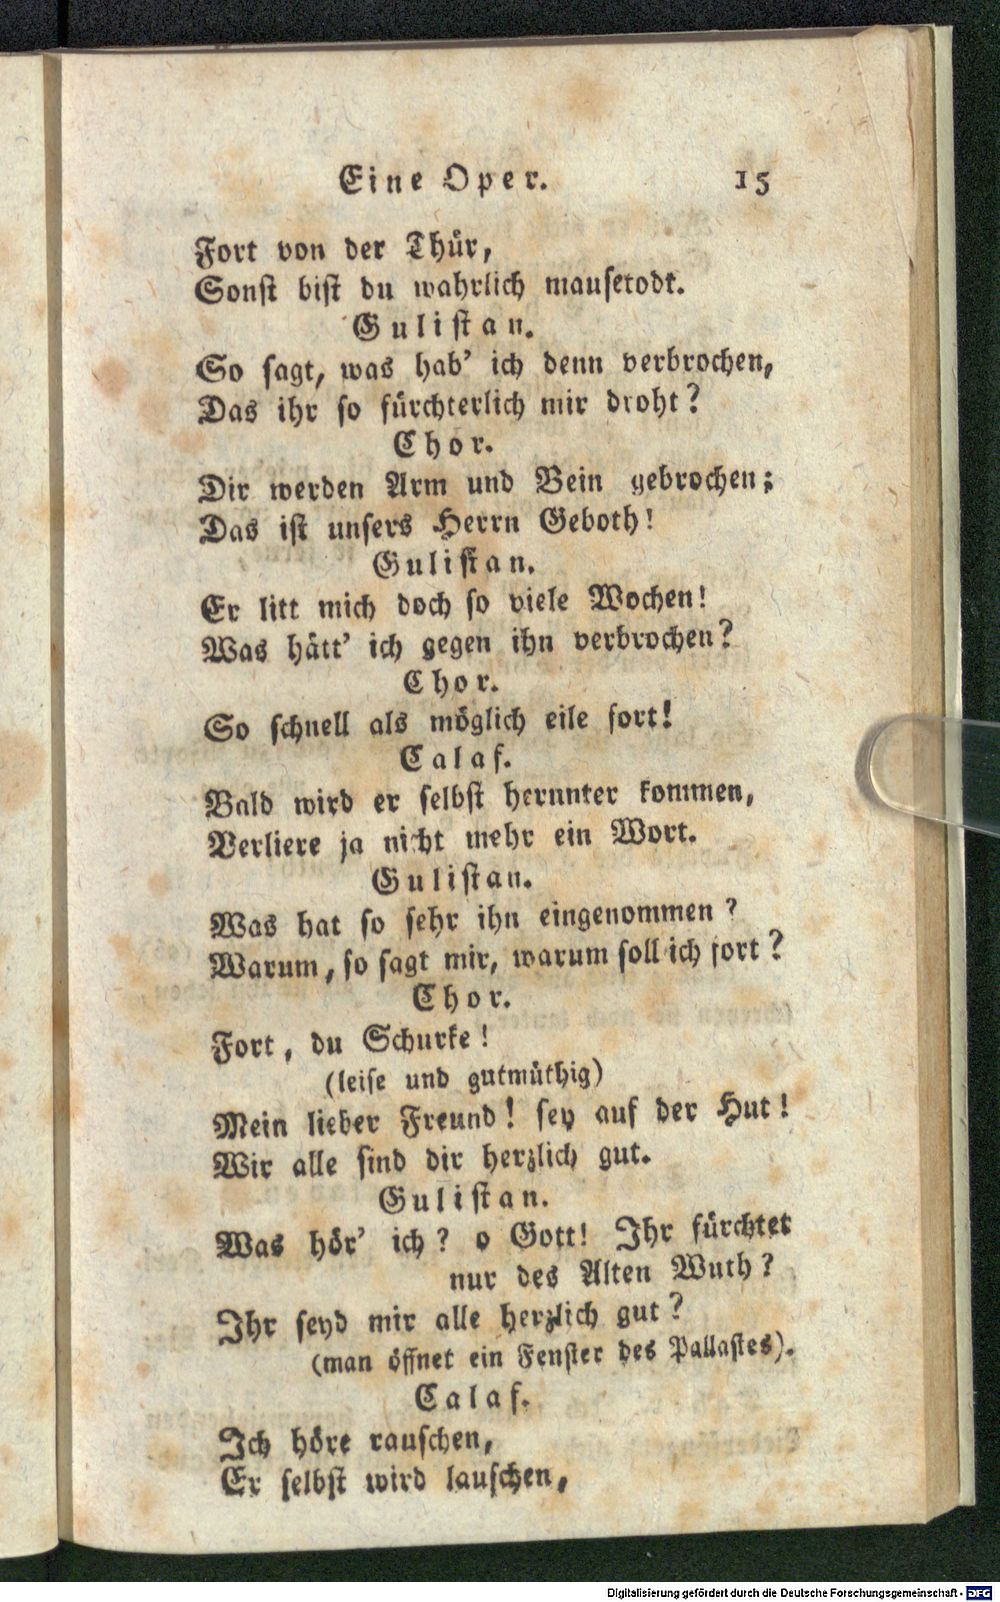 Eine Oper. 15
Fort von der Thür,
Sonst bist du wahrlich mausetodt.
Gulistan.
So sagt, was hab' ich denn verbrochen,
Das ihr so fürchterlich mir droht?
Chor.
Dir werden Arm und Bein gebrochen;
Das ist unsers Herrn Geboth!
Gulistan.
Er litt mich doch so viele Wochen!
Was hätt' ich gegen ihn verbrochen?
Chor.
So schnell als möglich eile fort!
Calaf.
Bald wird er selbst herunter kommen,
Verliere ja nicht mehr ein Wort.
Gulistan.
Was hat so sehr ihn eingenommen?
Warum, so sagt mir, warum soll ich fort?
Chor.
Fort, du Schurke!
(leise und gutmüthig)
Mein lieber Freund! sey auf der Hut!
Wir alle sind dir herzlich gut.
Gulistan.
Was hör' ich? o Gott! Ihr fürchtet
nur des Alten Wuth?
Ihr seyd mir alle herzlich gut?
(man öffnet ein Fenster des Pallastes).
Calaf.
Ich höre rauschen,
Er selbst wird lauschen,
Digitalisierung gefördert durch die Deutsche Forschungsgemeinschaft - DFG